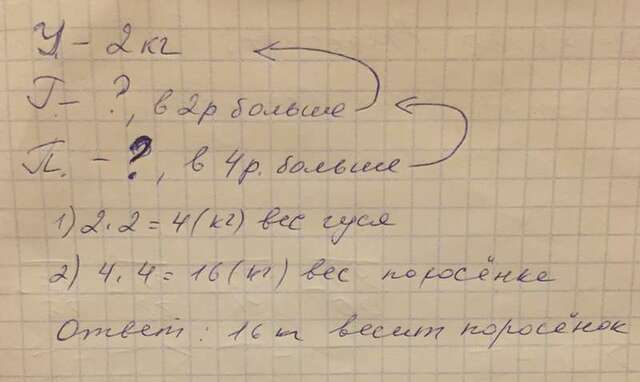 У. – 2 кг
Г. – ?, в 2р больше
П. – ?, в 4р. больше
1) 2·2=4(кг) вес гуся
2) 4·4=16(кг) вес поросёнка
Ответ: 16 кг весит поросёнок